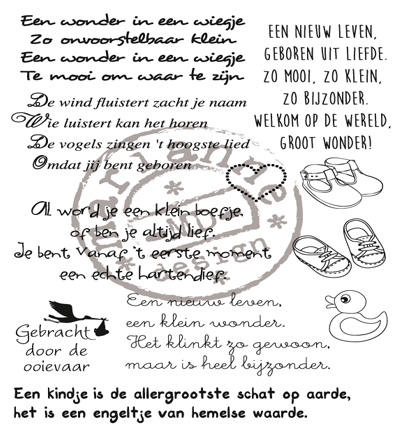 Een wonder in een wiegje
Zo onvoorstelbaar klein
Een wonder in een wiegje
Te mooi om waar te zijn
EEN NIEUW LEVEN,
GEBOREN UIT LIEFDE.
ZO MOOI, ZO KLEIN,
ZO BIJZONDER.
WELKOM OP DE WERELD,
GROOT WONDER!
De wind fluistert zacht je naam
Wie luistert kan het horen
De vogels zingen 't hoogste lied
Omdat jij bent geboren
marianne
design
Al word je een klein boefje,
of ben je altijd lief.
Je bent vanaf 't eerste moment
een echte hartendief.
Gebracht
door de
ooievaar
Een nieuw leven,
een klein wonder.
Het klinkt zo gewoon,
maar is heel bijzonder.
Een kindje is de allergrootste schat op aarde,
het is een engeltje van hemelse waarde.